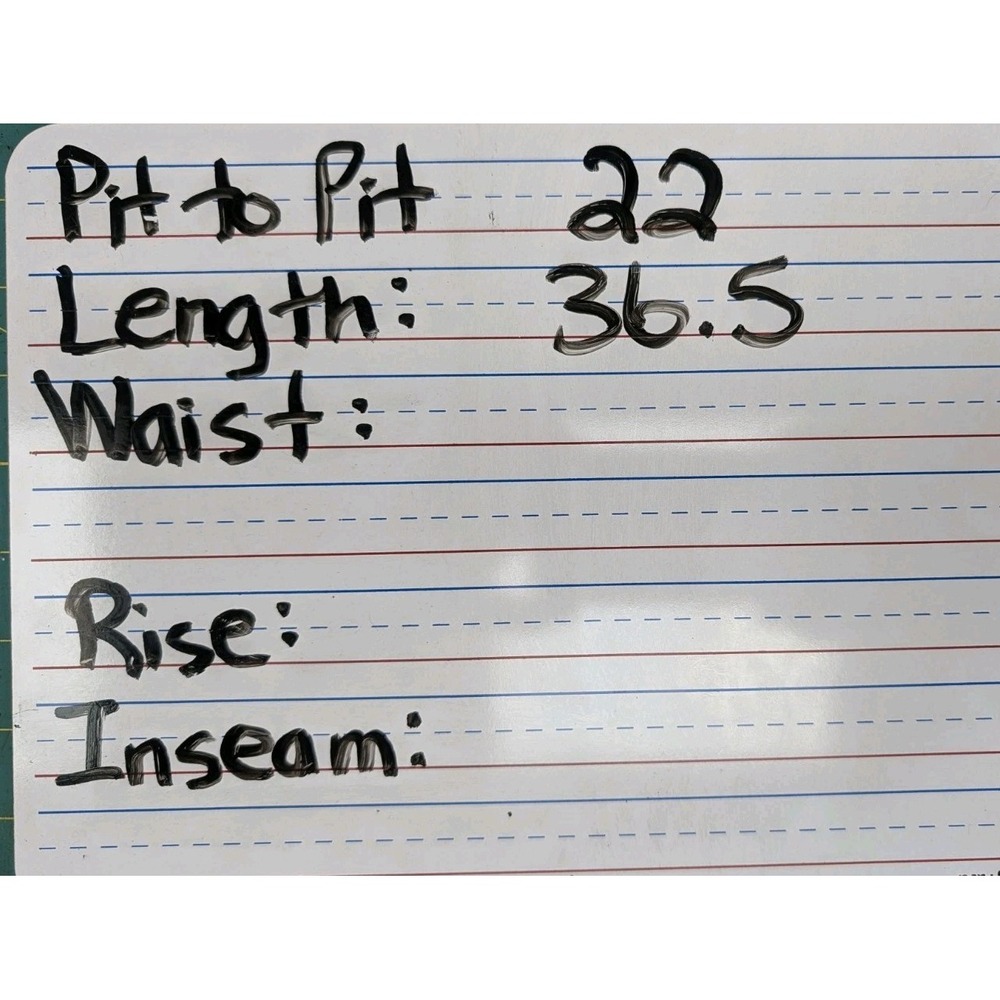 Pit to Pit 22
Length: 36.5
Waist:
Rise:
Inseam: